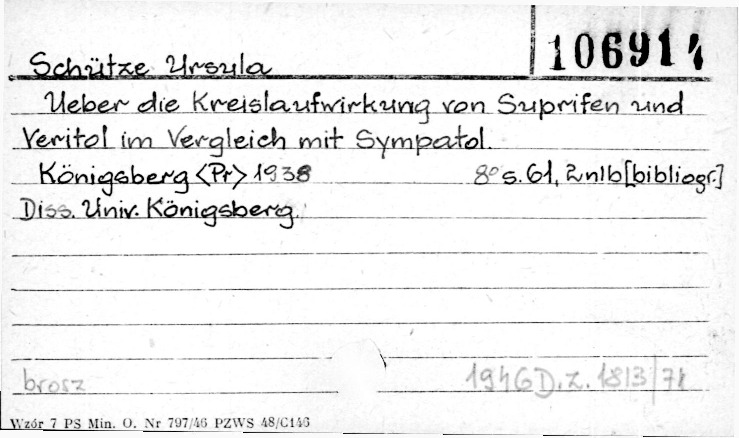 106914
Schütze Ursula
Ueber die Kreislaufwirkung von Suprifen und
Veritol im Vergleich mit Sympatol.
Königsberg <Pr> 1938 8° s. 61, 2 nlb [bibliogr.]
Diss. Univ. Königsberg.
brosz 1946 D.z. 1813/71
Wzór 7 PS Min. O. Nr 797/46 PZWS 48/C146